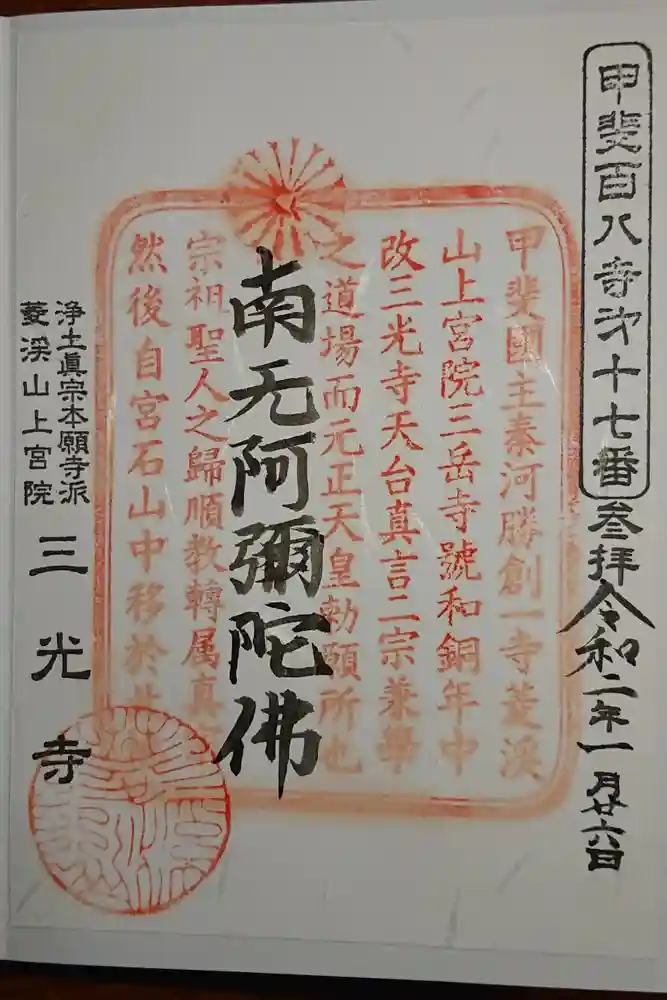 甲斐百八寺㐧十七番
参拝令和二年一月廿六日
甲斐國主秦河勝創一寺菱渓
山上宮院三岳寺號和銅年中
改三光寺天台真言二宗兼學
之道場而元正天皇勅願所也
南无阿彌陀佛
宗祖聖人之歸順教轉属真
然後自宮石山中移於
浄土眞宗本願寺派
菱渓山上宮院
三光寺